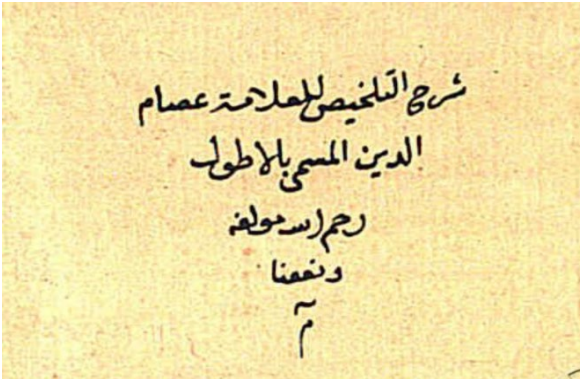 شرح التلخيص للعلامة عصام
الدين المسمى بالاطول
رحم الله مولفه
ونفعنا
م